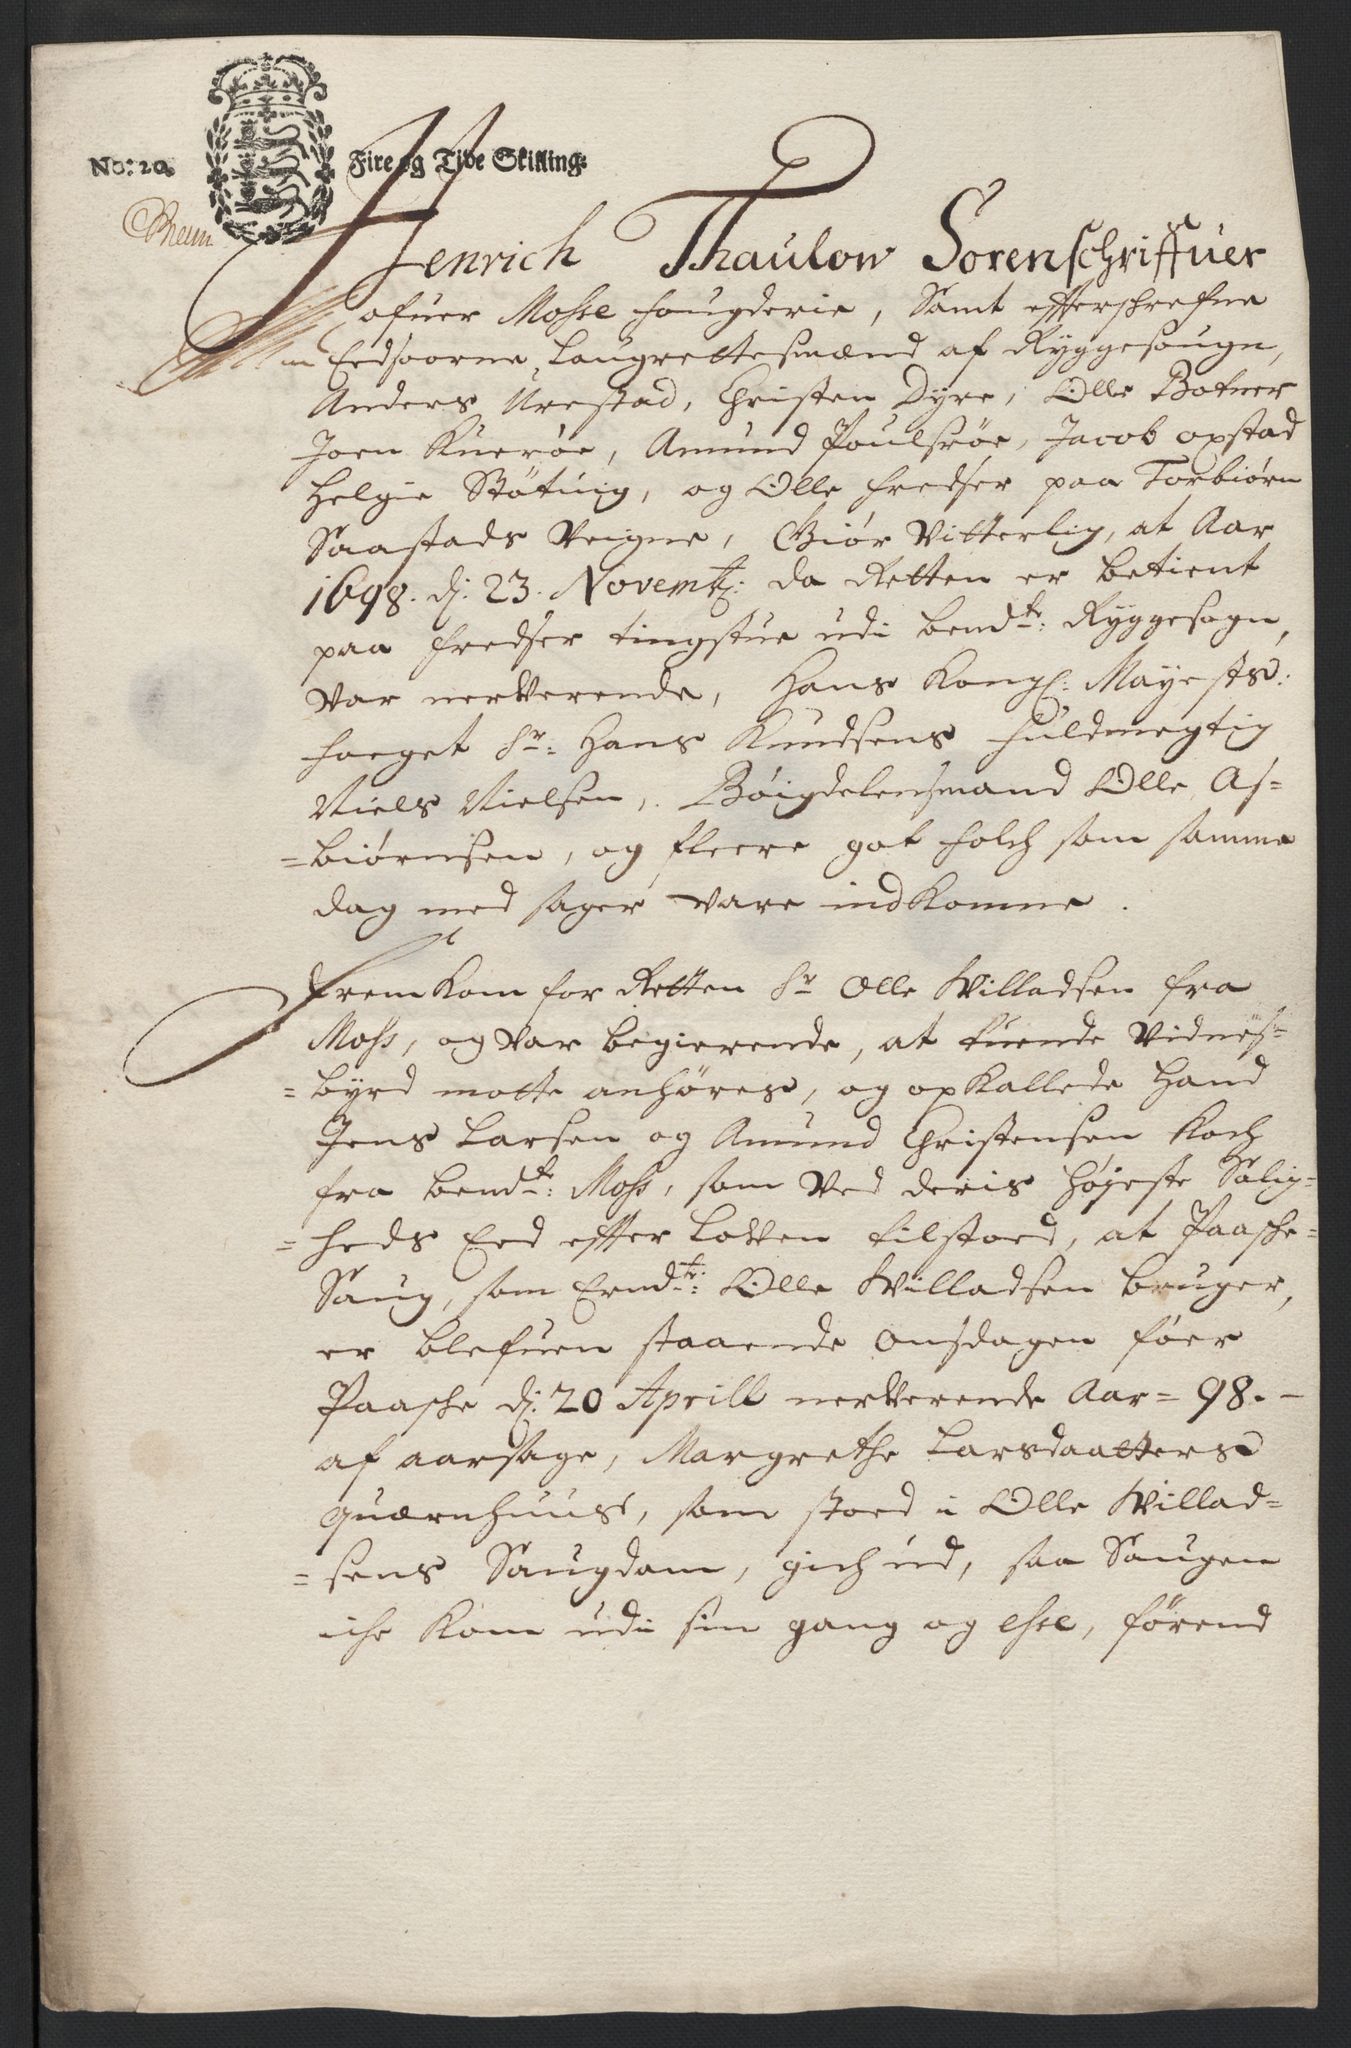 No: 20. Fire og Tive Skilling:
Henrich Thaulow Sorenschriffuer
ofuer Mosse fougderie, Samt efterschrefne
Eedsoorne Laugrettesmænd af Ryggesougn,
Anders Urestad, Christen Dyre, Olle Botner
Joen Kuerøe, Amund Poulsrøe, Jacob opstad
Helgie Støtuig, og Olle Fredser paa Torbiørn
Saastads Veigne, Giør Vitterlig, at Aar
1698. dj: 23. Novembr: da Retten er betient
paa Fredser tingstue udi bemdte: Ryggesogn,
Var nerverende, Hans Kongl: Mayests:
foeget Sr: Hans Knudsens fuldmegtig
Niels Nielsen, Bøigdelensmand Olle As=
=biørnsen, og fleere got folch som samme
dag med sager vare indkomne.
Fremkom for Retten Sr Olle Willadsen fra
Moss, og var begierende, at tuende Vidnes=
=byrd motte anhøres, og opkallede Hand
Jens Larsen og Amund Christensen Koch
fra bemdte: Moss, som Ved deris Høyeste Salig=
=heds Eed effter Loven tilstoed, at Paasche=
Saug, som Ermdte: Olle Willadsen bruger,
er blefuen staaende Onsdagen føer
Paasche dj: 20 Aprill nerverende Aar= 98. –
af aarsage, Margrethe Larsdaatters
quærnhuus, som stoed i Olle Willad=
=sens Saugdam, gich ud, saa Saugen
iche kom udi sin gang og esse, førend